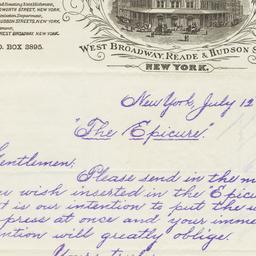 WORTH STREET, NEW YORK.
Department,
HUDSON STREETS, NEW YORK.
WEST BROADWAY, NEW YORK.
O. BOX 3895.
WEST BROADWAY, READE & HUDSON S
NEW YORK.
New York, July 12
"The Epicure."
Gentlemen:
Please send in the m
u wish inserted in the "Epicu
t is our intention to put the
press at once and your imme
ntion will greatly oblige.
Yours truly